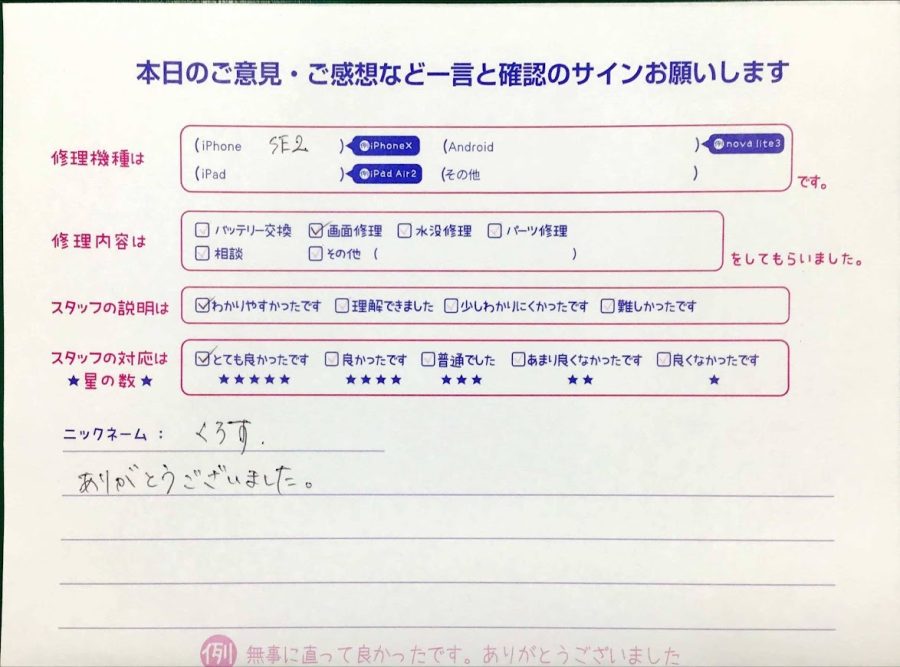 本日のご意見・ご感想など一言と確認のサインお願いします
修理機種は (iPhone SE2 ) 例iPhoneX (Android ) 例nova lite3
(iPad ) 例iPad Air2 (その他 ) です。
修理内容は □バッテリー交換 ☑画面修理 □水没修理 □パーツ修理
□相談 □その他 ( ) をしてもらいました。
スタッフの説明は ☑わかりやすかったです □理解できました □少しわかりにくかったです □難しかったです
スタッフの対応は ☑とても良かったです □良かったです □普通でした □あまり良くなかったです □良くなかったです
★星の数★ ★★★★★ ★★★★ ★★★ ★★ ★
ニックネーム: くろす.
ありがとうございました。
例 無事に直って良かったです。ありがとうございました